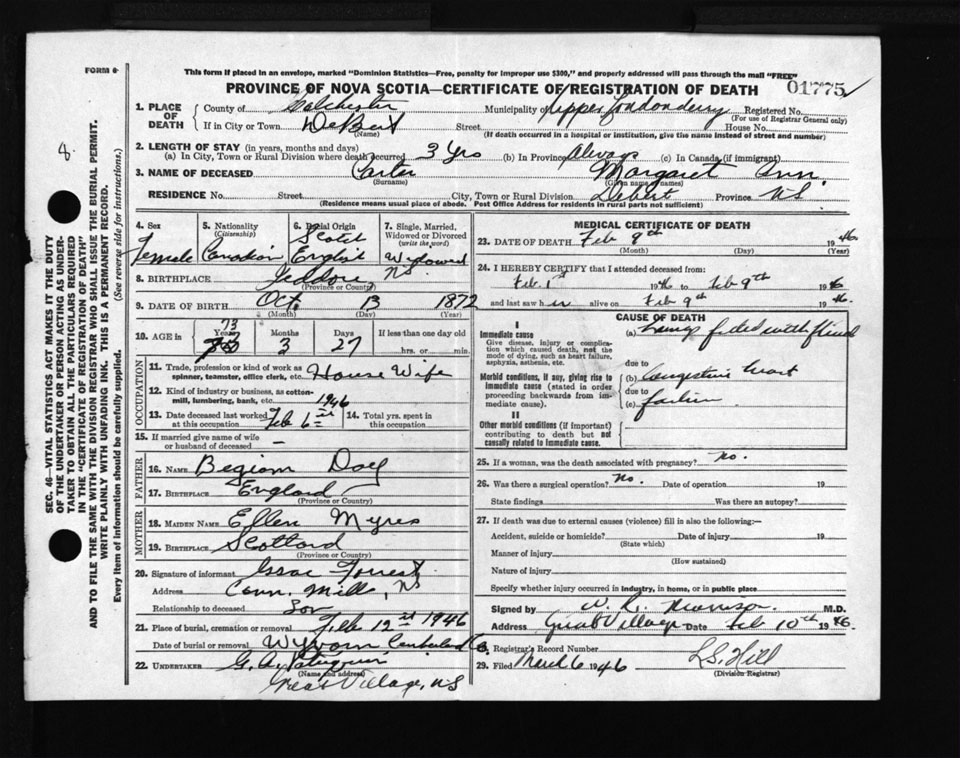 FORM 6
This form if placed in an envelope, marked "Dominion Statistics—Free, penalty for improper use $300," and properly addressed will pass through the mail "FREE"
PROVINCE OF NOVA SCOTIA—CERTIFICATE OF REGISTRATION OF DEATH
01775
1. PLACE OF DEATH
County of Colchester Municipality of Upper Londonderry Registered No.
(For use of Registrar General only)
If in City or Town DeBert Street House No.
(Name) (If death occurred in a hospital or institution, give the name instead of street and number)
2. LENGTH OF STAY (in years, months and days)
(a) In City, Town or Rural Division where death occurred 3 Yrs (b) In Province Always (c) In Canada (if immigrant)
3. NAME OF DECEASED Carter Margaret Ann.
(Surname) (Given name or names)
RESIDENCE No. Street City, Town or Rural Division Debert Province NS
(Residence means usual place of abode. Post Office Address for residents in rural parts not sufficient)
4. Sex Female
5. Nationality (Citizenship) Canadian
6. Racial Origin Scotch English
7. Single, Married, Widowed or Divorced (write the word) Widowed
8. BIRTHPLACE Jeddore NS
(Province or Country)
9. DATE OF BIRTH Oct. 13 1872
(Month) (Day) (Year)
10. AGE in 73 Years 3 Months 27 Days If less than one day old
hrs. or min.
OCCUPATION
11. Trade, profession or kind of work as spinner, teamster, office clerk, etc. House Wife
12. Kind of industry or business, as cotton-mill, lumbering, bank, etc.
13. Date deceased last worked at this occupation Feb 6 1946
14. Total yrs. spent in this occupation
15. If married give name of wife or husband of deceased —
FATHER
16. NAME Doey
17. BIRTHPLACE England
(Province or Country)
MOTHER
18. MAIDEN NAME Ellen Myres
19. BIRTHPLACE Scotland
(Province or Country)
20. Signature of informant Isaac Forrest
Address Conn. Mills, NS
Relationship to deceased Son
21. Place of burial, cremation or removal Feb 12 1946
Date of burial or removal Wyvern Cumberland Co.
22. UNDERTAKER G. A.
(Name and address)
Great Village, NS
MEDICAL CERTIFICATE OF DEATH
23. DATE OF DEATH Feb 9th 1946
(Month) (Day) (Year)
24. I HEREBY CERTIFY that I attended deceased from:
Feb. 1st 1946 to Feb 9th 1946
and last saw her alive on Feb 9th 1946.
CAUSE OF DEATH
I
Immediate cause
Give disease, injury or complication which caused death, not the mode of dying, such as heart failure, asphyxia, asthenia, etc.
(a) Lungs filled with fluid
due to
Morbid conditions, if any, giving rise to immediate cause (stated in order proceeding backwards from immediate cause).
(b) Congestive heart
due to
(c) failure
II
Other morbid conditions (if important) contributing to death but not causally related to immediate cause.
25. If a woman, was the death associated with pregnancy? No.
26. Was there a surgical operation? No. Date of operation 19
State findings Was there an autopsy?
27. If death was due to external causes (violence) fill in also the following:—
Accident, suicide or homicide? Date of injury 19
(State which)
Manner of injury
(How sustained)
Nature of injury
Specify whether injury occurred in industry, in home, or in public place
Signed by W. R. Morrison M.D.
Address Great Village Date Feb 10th 1946.
28. Registrar's Record Number
29. Filed March 6 1946 L.S. Hill
(Division Registrar)
8
SEC. 46—VITAL STATISTICS ACT MAKES IT THE DUTY
OF THE UNDERTAKER OR PERSON ACTING AS UNDER-
TAKER TO OBTAIN ALL THE PARTICULARS REQUIRED
IN THE "CERTIFICATE OF REGISTRATION OF DEATH"
AND TO FILE THE SAME WITH THE DIVISION REGISTRAR WHO SHALL ISSUE THE BURIAL PERMIT.
WRITE PLAINLY WITH UNFADING INK. THIS IS A PERMANENT RECORD.
Every item of information should be carefully supplied. (See reverse side for instructions.)